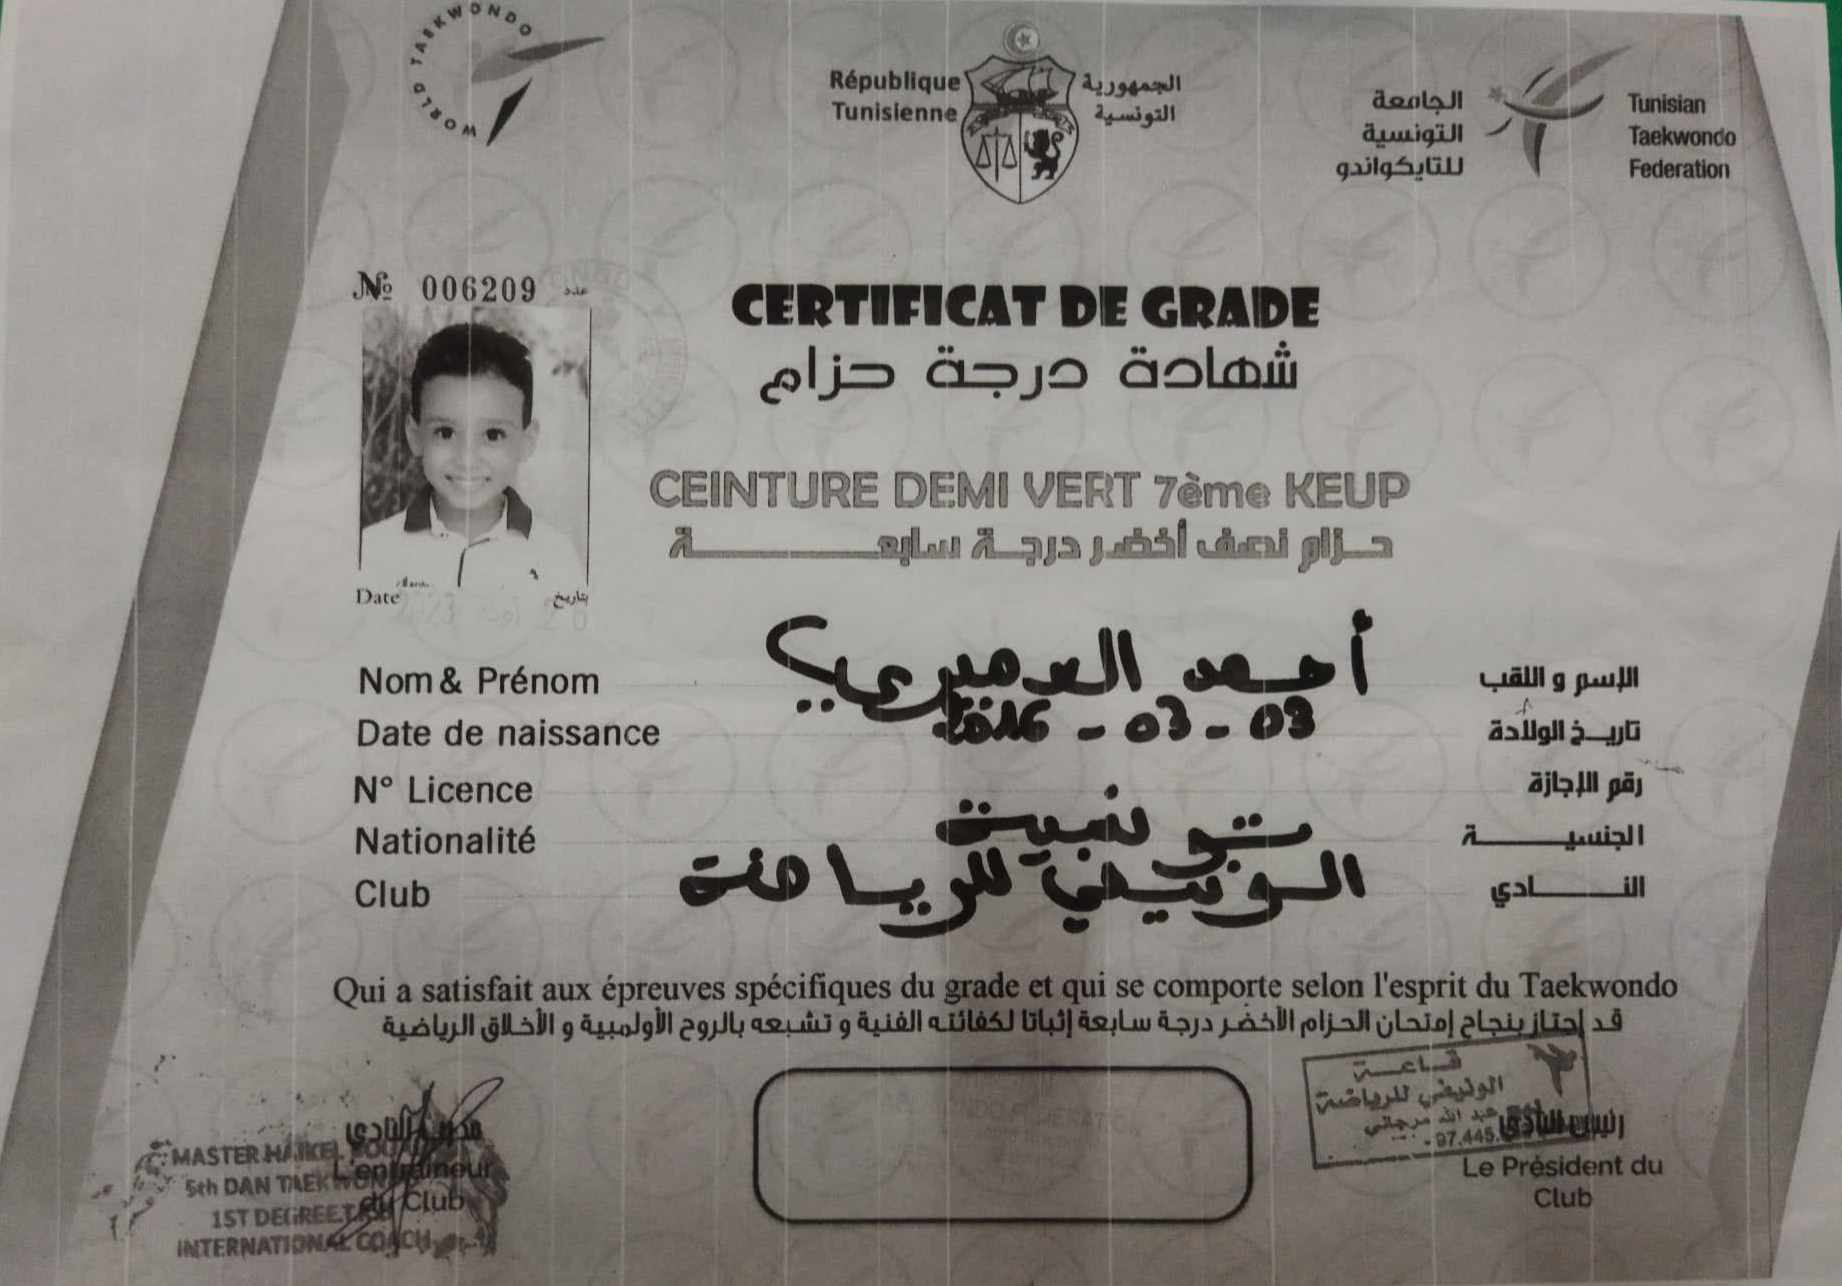 WORLD TAEKWONDO
République
Tunisienne
الجمهورية
التونسية
الجامعة
التونسية
للتايكواندو
Tunisian
Taekwondo
Federation
№ 006209 عدد
CERTIFICAT DE GRADE
شهادة درجة حزام
CEINTURE DEMI VERT 7ème KEUP
حزام نصف أخضر درجة سابعة
Date بتاريخ
Nom & Prénom أحمد العميري الإسم و اللقب
Date de naissance 2016 - 03 - 03 تاريخ الولادة
N° Licence رقم الإجازة
Nationalité تونسية الجنسية
Club الونيفي للرياضة النادي
Qui a satisfait aux épreuves spécifiques du grade et qui se comporte selon l'esprit du Taekwondo
قد إجتاز بنجاح إمتحان الحزام الأخضر درجة سابعة إثباتا لكفائته الفنية و تشبعه بالروح الأولمبية و الأخلاق الرياضية
مدرب النادي
L'entraineur
du Club
MASTER HAIKEL
5th DAN TAEKWONDO
1ST DEGREE
INTERNATIONAL COACH
قاعة
الونيفي للرياضة
عبد الله مرجاني
97.445.
رئيس النادي
Le Président du
Club